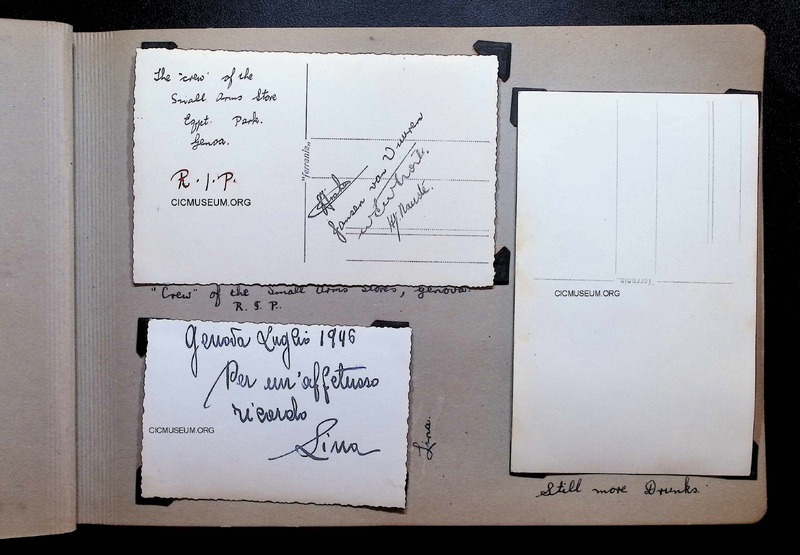 The "crew" of the
Small Arms Store
Egypt. Park.
Genoa.
R.I.P.
CICMUSEUM.ORG
"ferrania"
Jansen van Vuuren
Naudé.
"Crew" of the Small Arms Stores, Genova.
R.I.P.
Genova Luglio 1946
Per un'affetuso
ricordo
Lina
CICMUSEUM.ORG
Lina.
ferrania
CICMUSEUM.ORG
Still more Drunks.